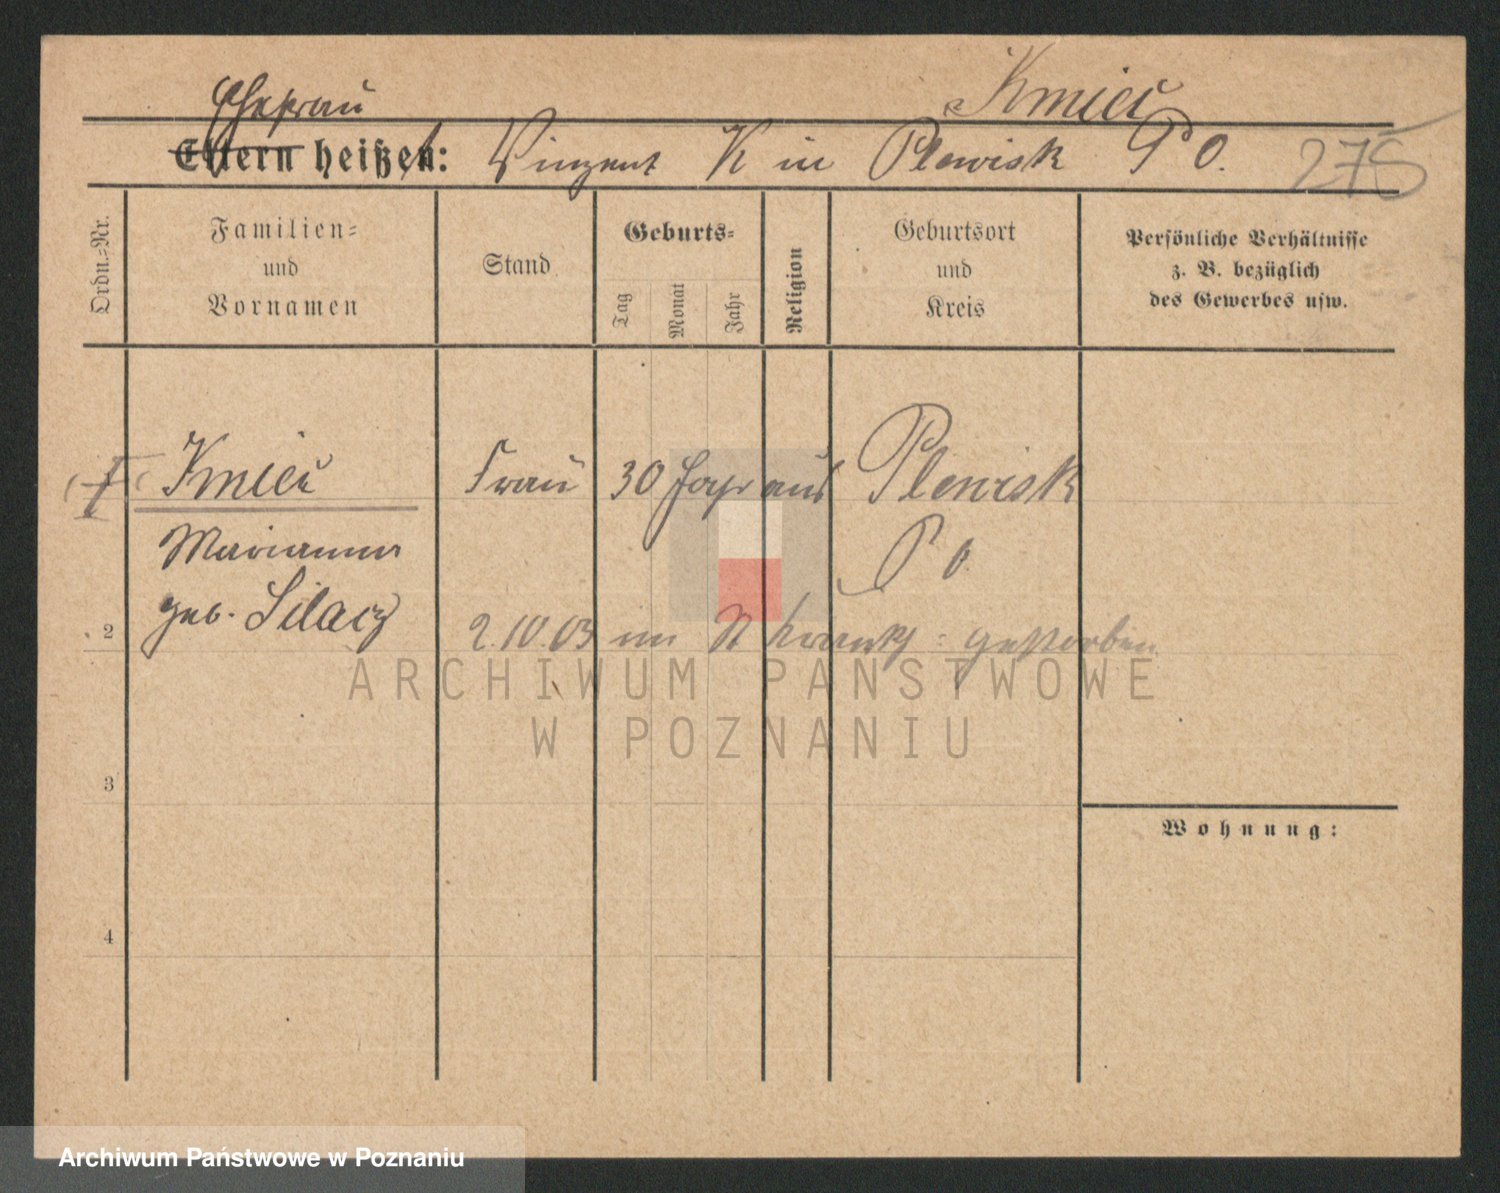 Kmieć
Ehefrau
Eltern heißen: Vinzent K in Plewisk P O. 275
Ordn.-Nr.
Familien-
und
Vornamen
Stand
Geburts-
Tag
Monat
Jahr
Religion
Geburtsort
und
Kreis
Persönliche Verhältnisse
z. B. bezüglich
des Gewerbes usw.
Kmieć Frau 30 Jahr aus Plewisk
Marianna P O.
geb.
2 2.10.03 im St Krankh: gestorben
ARCHIWUM PAŃSTWOWE
W POZNANIU
3
Wohnung:
4
Archiwum Państwowe w Poznaniu